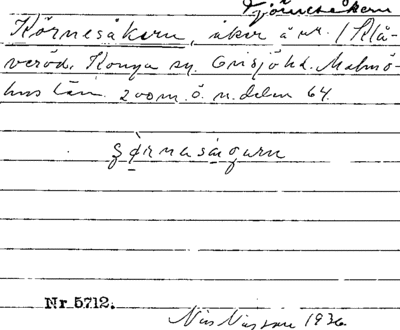 Tjörnesåkern
Körnesåkern, åker å nr. 1 Klå-
veröd, Konga sn. Onsjö hd. Malmö-
hus län. 200 m. ö. n. delen 64.
Nr 5712.
Nils Nilsson 1936